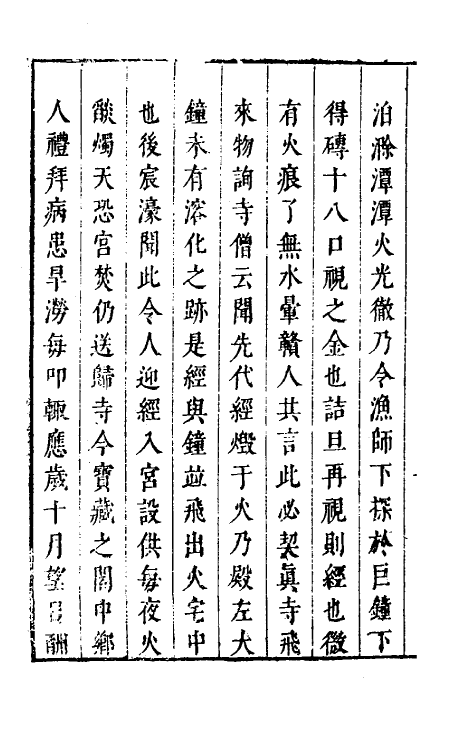 泊滁潭潭火光徹乃令漁師下探於巨鐘下
得磚十八口視之金也詰旦再視則經也微
有火痕了無水暈贛人其言此必契真寺飛
來物詢寺僧云聞先代經燬于火乃殿左大
鐘未有溶化之跡是經與鐘並飛出火宅中
也後宸濠聞此令人迎經入宮設供每夜火
燄燭天恐宮焚仍送歸寺今寶藏之閣中鄉
人禮拜病患旱澇每叩輒應歲十月望日酬